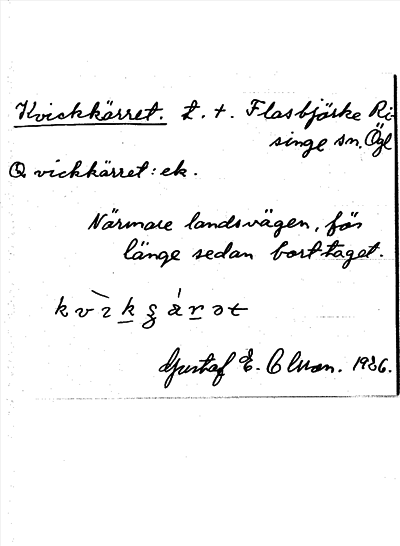 Kvickkärret. t. +. Flasbjörke Ri-
singe sn. Ögl
Qvickkärret: ek.
Närmare landsvägen, för
länge sedan borttaget.
Gustaf E. Olsson. 1936.